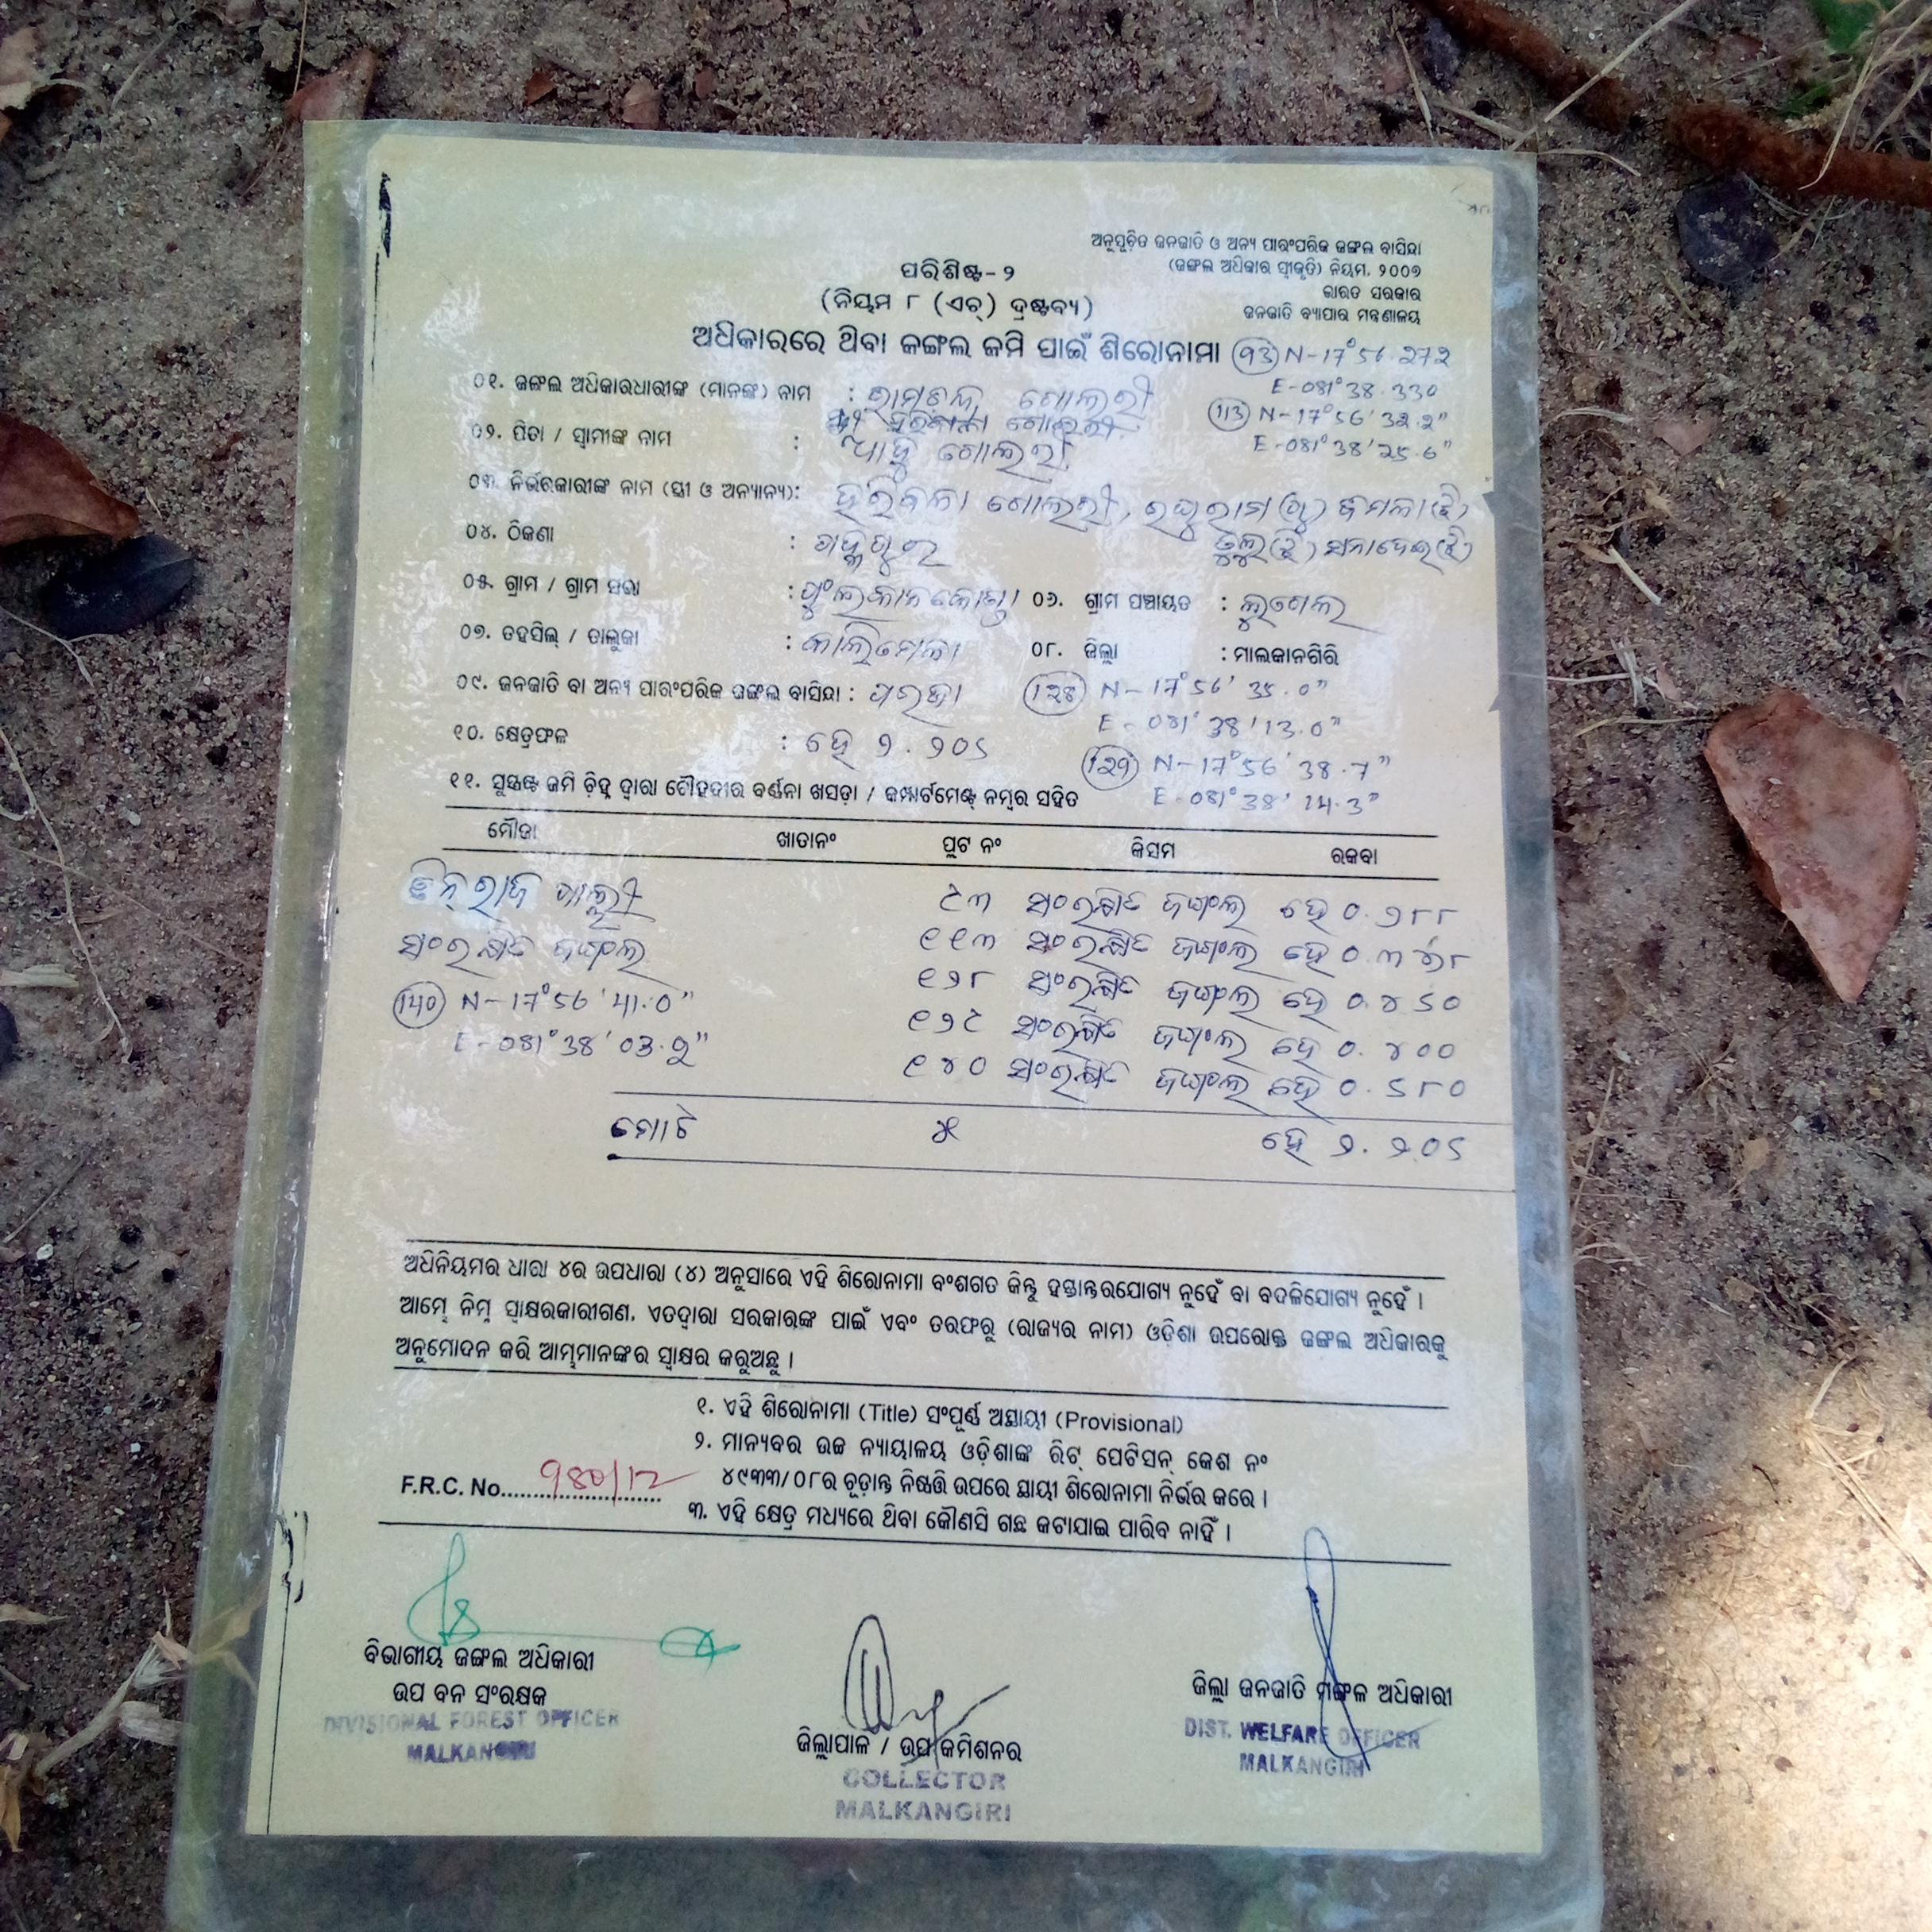 ଅନୁସୂଚିତ ଜନଜାତି ଓ ଅନ୍ୟ ପାରଂପରିକ ଜଙ୍ଗଲ ବାସିନ୍ଦା
(ଜଙ୍ଗଲ ଅଧିକାର ସ୍ୱୀକୃତି) ନିୟମ, ୨୦୦୭
ଭାରତ ସରକାର
ଜନଜାତି ବ୍ୟାପାର ମନ୍ତ୍ରଣାଳୟ
ପରିଶିଷ୍ଟ-୨
(ନିୟମ ୮ (ଏଚ୍) ଦ୍ରଷ୍ଟବ୍ୟ)
ଅଧିକାରରେ ଥିବା ଜଙ୍ଗଲ ଜମି ପାଇଁ ଶିରୋନାମା (93) N-17° 56.272
E-081° 38.330
୦୧. ଜଙ୍ଗଲ ଅଧିକାରଧାରୀଙ୍କ (ମାନଙ୍କ) ନାମ : ରାମଚନ୍ଦ୍ର ଗୋଲରୀ
(113) N-17° 56' 32.2"
E-081° 38' 25.6"
୦୨. ପିତା / ସ୍ୱାମୀଙ୍କ ନାମ : ଗୋଲରୀ
୦୩. ନିର୍ଭରକାରୀଙ୍କ ନାମ (ସ୍ତ୍ରୀ ଓ ଅନ୍ୟାନ୍ୟ): ଗୋଲରୀ, ରଘୁରାମ (ପୁ) (ଝି)
୦୪. ଠିକଣା :
୦୫. ଗ୍ରାମ / ଗ୍ରାମ ସଭା : ୦୬. ଗ୍ରାମ ପଞ୍ଚାୟତ :
୦୭. ତହସିଲ୍ / ତାଲୁକା : କାଲିମେଳା ୦୮. ଜିଲ୍ଲା : ମାଲକାନଗିରି
୦୯. ଜନଜାତି ବା ଅନ୍ୟ ପାରଂପରିକ ଜଙ୍ଗଲ ବାସିନ୍ଦା : ପରଜା (128) N-17° 56' 35.0"
E-081° 38' 13.0"
୧୦. କ୍ଷେତ୍ରଫଳ : ହେ ୨.୨୦୬
(129) N-17° 56' 38.7"
E-081° 38' 14.3"
୧୧. ସୁସ୍ପଷ୍ଟ ଜମି ଚିହ୍ନ ଦ୍ୱାରା ଚୌହଦୀର ବର୍ଣ୍ଣନା ଖସଡ଼ା / କମ୍ପାର୍ଟମେଣ୍ଟ୍ ନମ୍ବର ସହିତ
ମୌଜା ଖାତାନଂ ପ୍ଲଟ ନଂ କିସମ ରକବା
୯୩ ସଂରକ୍ଷିତ ଜଙ୍ଗଲ ହେ ୦.୨୮୮
ସଂରକ୍ଷିତ ଜଙ୍ଗଲ ୧୧୩ ସଂରକ୍ଷିତ ଜଙ୍ଗଲ ହେ ୦.୩
(140) N-17° 56' 41.0" ୧୨୮ ସଂରକ୍ଷିତ ଜଙ୍ଗଲ ହେ ୦.୪୬୦
E-081° 38' 03.2" ୧୨୯ ସଂରକ୍ଷିତ ଜଙ୍ଗଲ ହେ ୦.୪୦୦
୧୪୦ ସଂରକ୍ଷିତ ଜଙ୍ଗଲ ହେ ୦.୬୮୦
ମୋଟ ୫ ହେ ୨.୨୦୬
ଅଧିନିୟମର ଧାରା ୪ର ଉପଧାରା (୪) ଅନୁସାରେ ଏହି ଶିରୋନାମା ବଂଶଗତ କିନ୍ତୁ ହସ୍ତାନ୍ତରଯୋଗ୍ୟ ନୁହେଁ ବା ବଦଳିଯୋଗ୍ୟ ନୁହେଁ ।
ଆମ୍ଭେ ନିମ୍ନ ସ୍ୱାକ୍ଷରକାରୀଗଣ, ଏତଦ୍ୱାରା ସରକାରଙ୍କ ପାଇଁ ଏବଂ ତରଫରୁ (ରାଜ୍ୟର ନାମ) ଓଡ଼ିଶା ଉପରୋକ୍ତ ଜଙ୍ଗଲ ଅଧିକାରକୁ
ଅନୁମୋଦନ କରି ଆମ୍ଭମାନଙ୍କର ସ୍ୱାକ୍ଷର କରୁଅଛୁ ।
୧. ଏହି ଶିରୋନାମା (Title) ସଂପୂର୍ଣ୍ଣ ଅସ୍ଥାୟୀ (Provisional)
୨. ମାନ୍ୟବର ଉଚ୍ଚ ନ୍ୟାୟାଳୟ ଓଡ଼ିଶାଙ୍କ ରିଟ୍ ପେଟିସନ୍ କେଶ ନଂ
୪୯୩୩/୦୮ର ଚୂଡ଼ାନ୍ତ ନିଷ୍ପତ୍ତି ଉପରେ ସ୍ଥାୟୀ ଶିରୋନାମା ନିର୍ଭର କରେ ।
F.R.C. No. 980/12
୩. ଏହି କ୍ଷେତ୍ର ମଧ୍ୟରେ ଥିବା କୌଣସି ଗଛ କଟାଯାଇ ପାରିବ ନାହିଁ ।
ବିଭାଗୀୟ ଜଙ୍ଗଲ ଅଧିକାରୀ
ଉପ ବନ ସଂରକ୍ଷକ
DIVISIONAL FOREST OFFICER
MALKANGIRI
ଜିଲ୍ଲାପାଳ / ଉପ କମିଶନର
COLLECTOR
MALKANGIRI
ଜିଲ୍ଲା ଜନଜାତି ମଙ୍ଗଳ ଅଧିକାରୀ
DIST. WELFARE OFFICER
MALKANGIRI